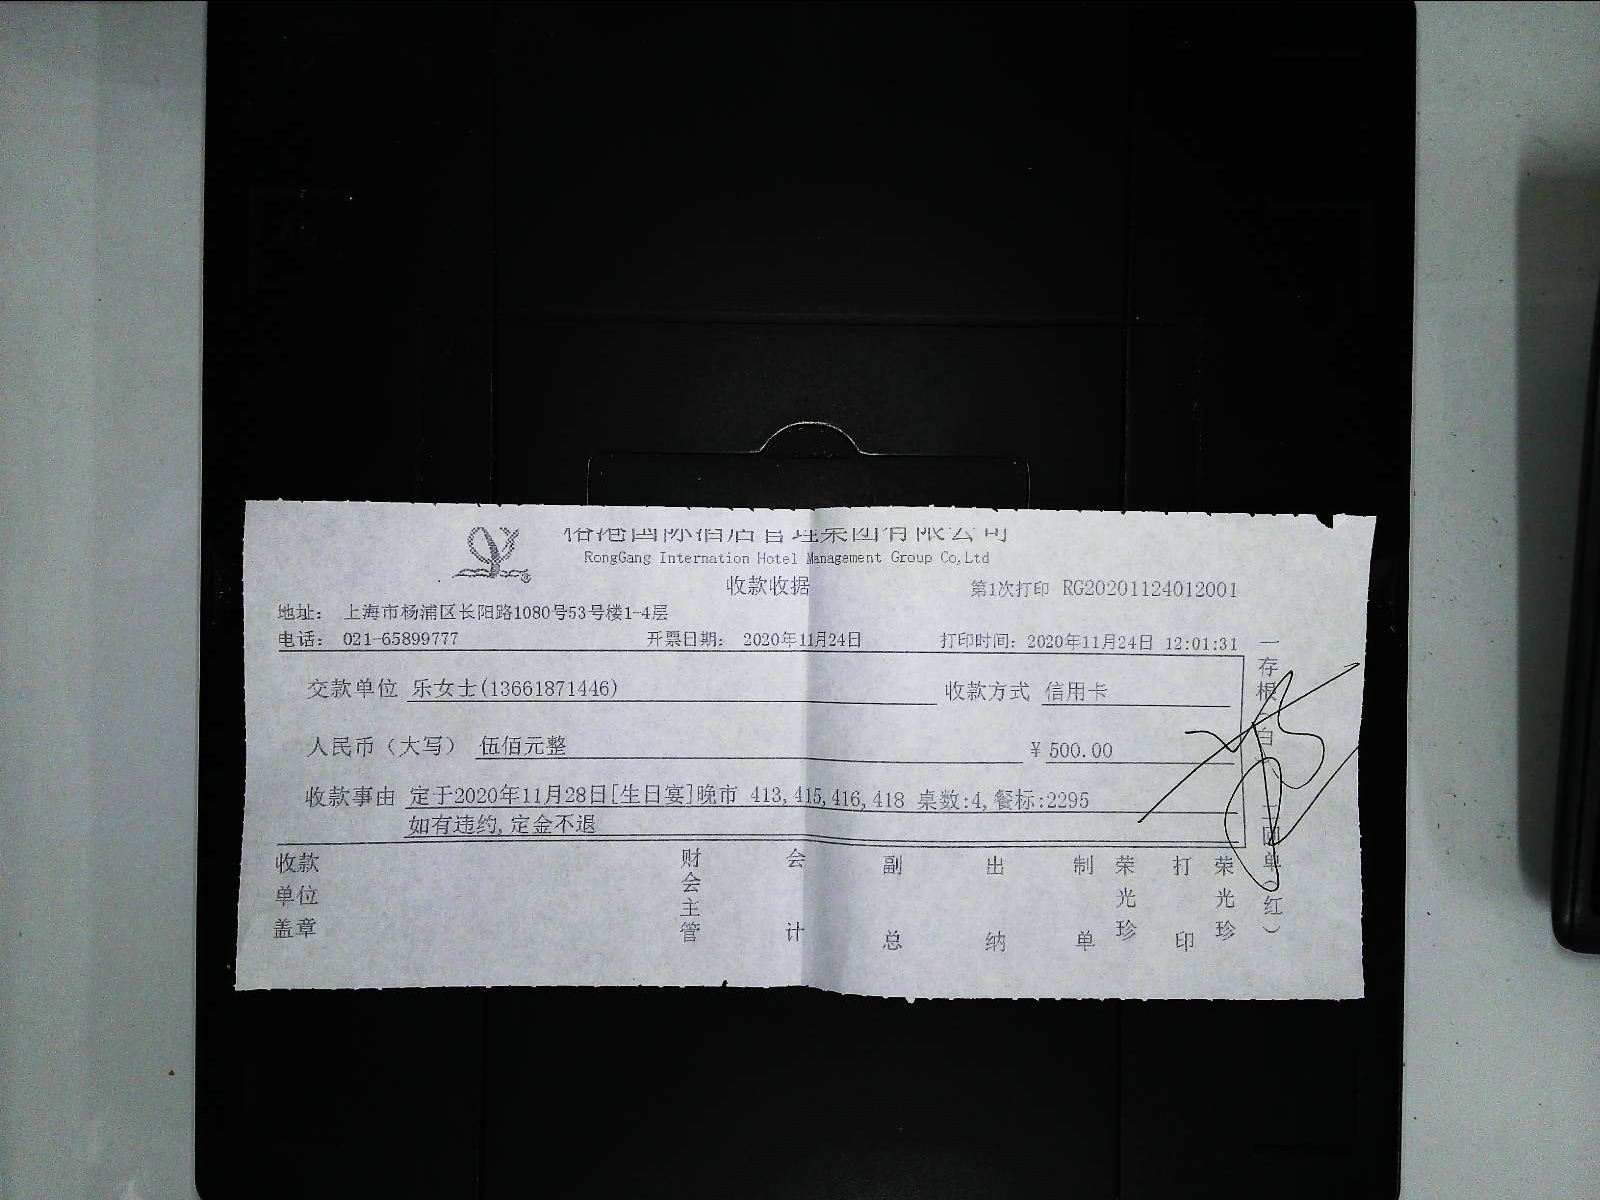 港国际酒店管理集团有限公司
RongGang Internation Hotel Management Group Co,Ltd
收款收据
第1次打印 RG20201124012001
地址： 上海市杨浦区长阳路1080号53号楼1-4层
电话： 021-65899777 开票日期： 2020年11月24日 打印时间： 2020年11月24日 12:01:31
交款单位 乐女士(13661871446) 收款方式 信用卡
人民币（大写） 伍佰元整 ¥ 500.00
收款事由 定于2020年11月28日[生日宴]晚市 413,415,416,418 桌数:4,餐标:2295
如有违约,定金不退
收款单位盖章 财会主管 会计 副总 出纳 制单 荣光珍 打印 荣光珍
一存根 白 二回单（红）